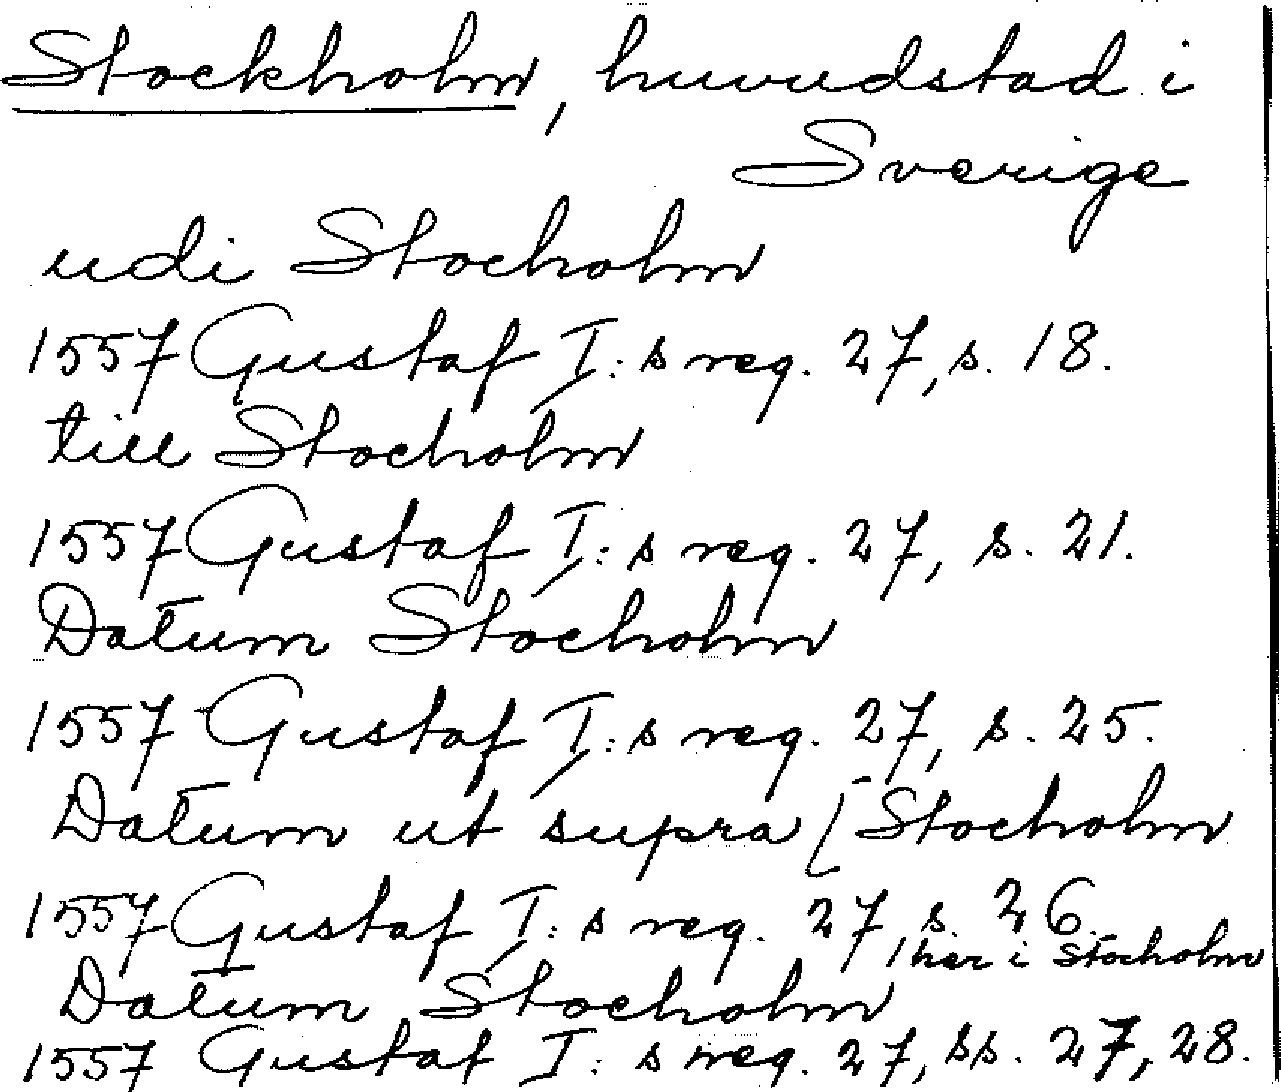 Stockholm, huvudstad i
Sverige
udi Stocholm
1557 Gustaf I:s reg. 27, s. 18.
till Stocholm
1557 Gustaf I:s reg. 27, s. 21.
Datum Stocholm
1557 Gustaf I:s reg. 27, s. 25.
Datum ut supra [Stocholm
1557 Gustaf I:s reg. 27, s. 26.
her i Stocholm
Datum Stocholm
1557 Gustaf I:s reg. 27, ss. 27, 28.